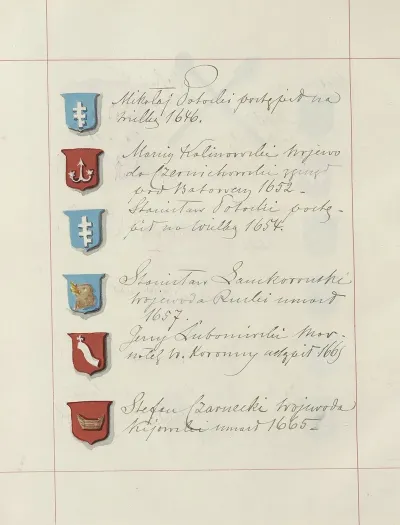 Mikołaj Potocki postąpił na
wielką 1646.
Marcin Kalinowski Wojewo
da Czernichowski zginął
pod Batowem 1652 -
Stanisław Potocki postą-
pił na wielką 1654.
Stanisław Lanckoroński
Wojewoda Ruski umarł
1657.
Jerzy Lubomirski Mar-
W. Koronny ustąpił 166
Stefan Czarnecki Wojewoda
Kijowski umarł 1665 -